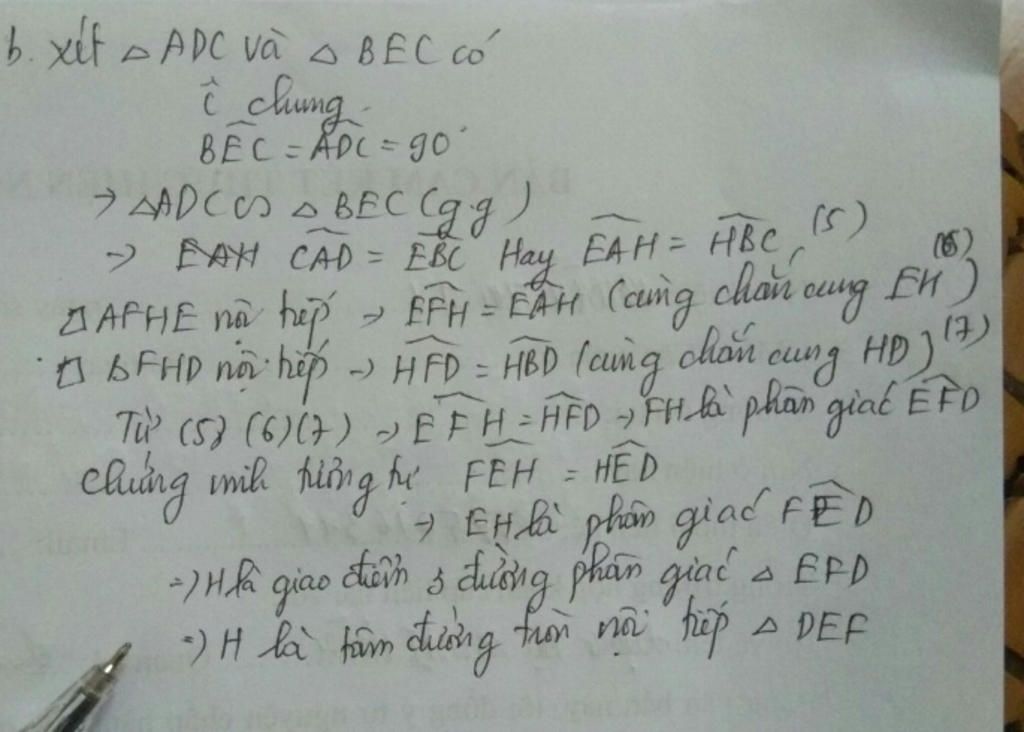 b. xét △ ADC và △ BEC có
Ĉ chung.
BÊC = ADC = 90°
→ △ADC ∽ △ BEC (g.g)
→ EAH CAD = EBC Hay EAH = HBC (5)
□ AFHE nội tiếp → EFH = EAH (cùng chắn cung EH) (6)
□ BFHD nội tiếp → HFD = HBD (cùng chắn cung HD) (7)
Từ (5) (6) (7) → EFH = HFD → FH là phân giác EFD
chứng minh tương tự FEH = HED
→ EH là phân giác FED
⇒ H là giao điểm 3 đường phân giác △ EFD
⇒ H là tâm đường tròn nội tiếp △ DEF